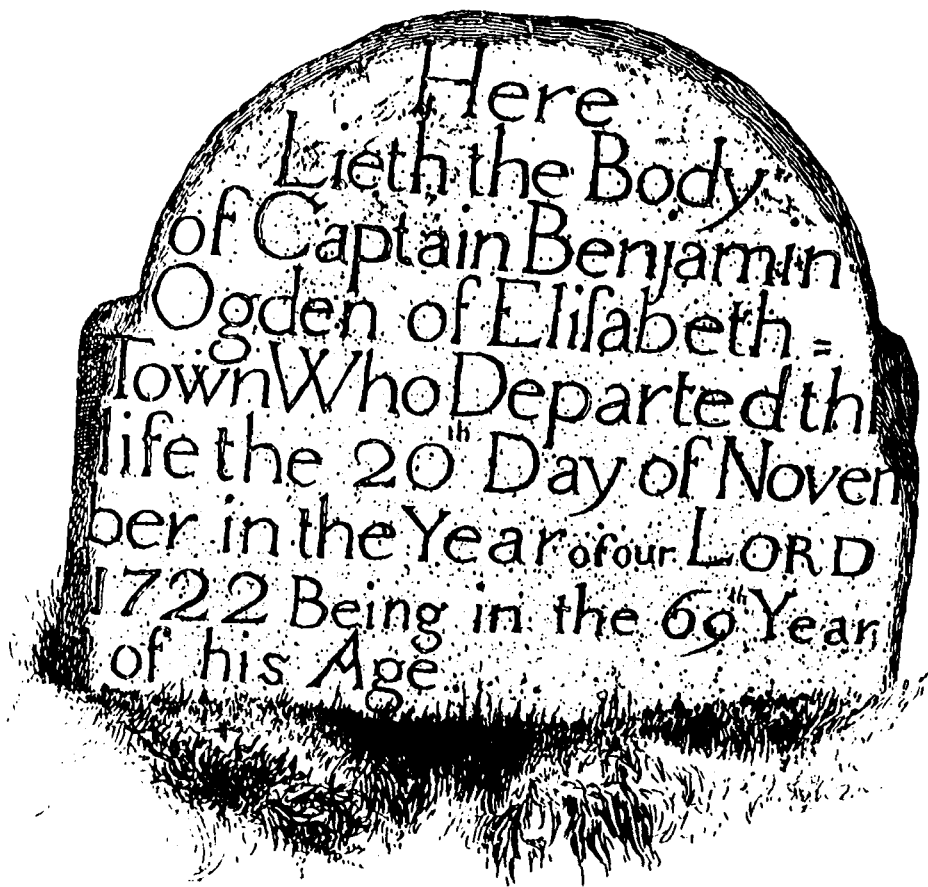 Here
Lieth the Body
of Captain Benjamin
Ogden of Eliſabeth =
Town Who Departed thi
life the 20th Day of Novem
ber in the Year of our LORD
1722 Being in the 69th Year
of his Age